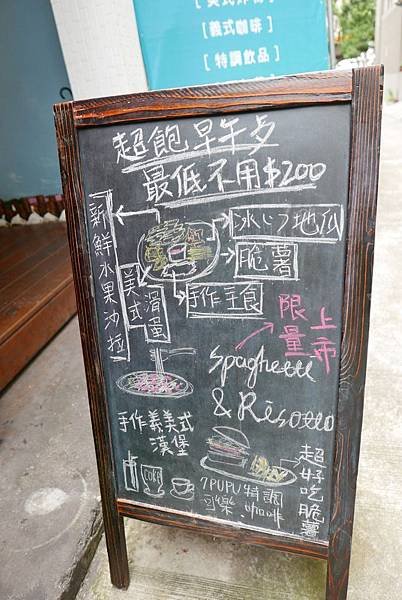 [義式咖啡]
[特調飲品]
超飽早午多
最低不用$200
新鮮水果沙拉
冰心地瓜
脆薯
手作主食
美式滑蛋
限量上市
Spaghetti
& Risotto
手作義美式
漢堡
超好吃脆薯
COKE
PUPU特調
可樂.咖啡